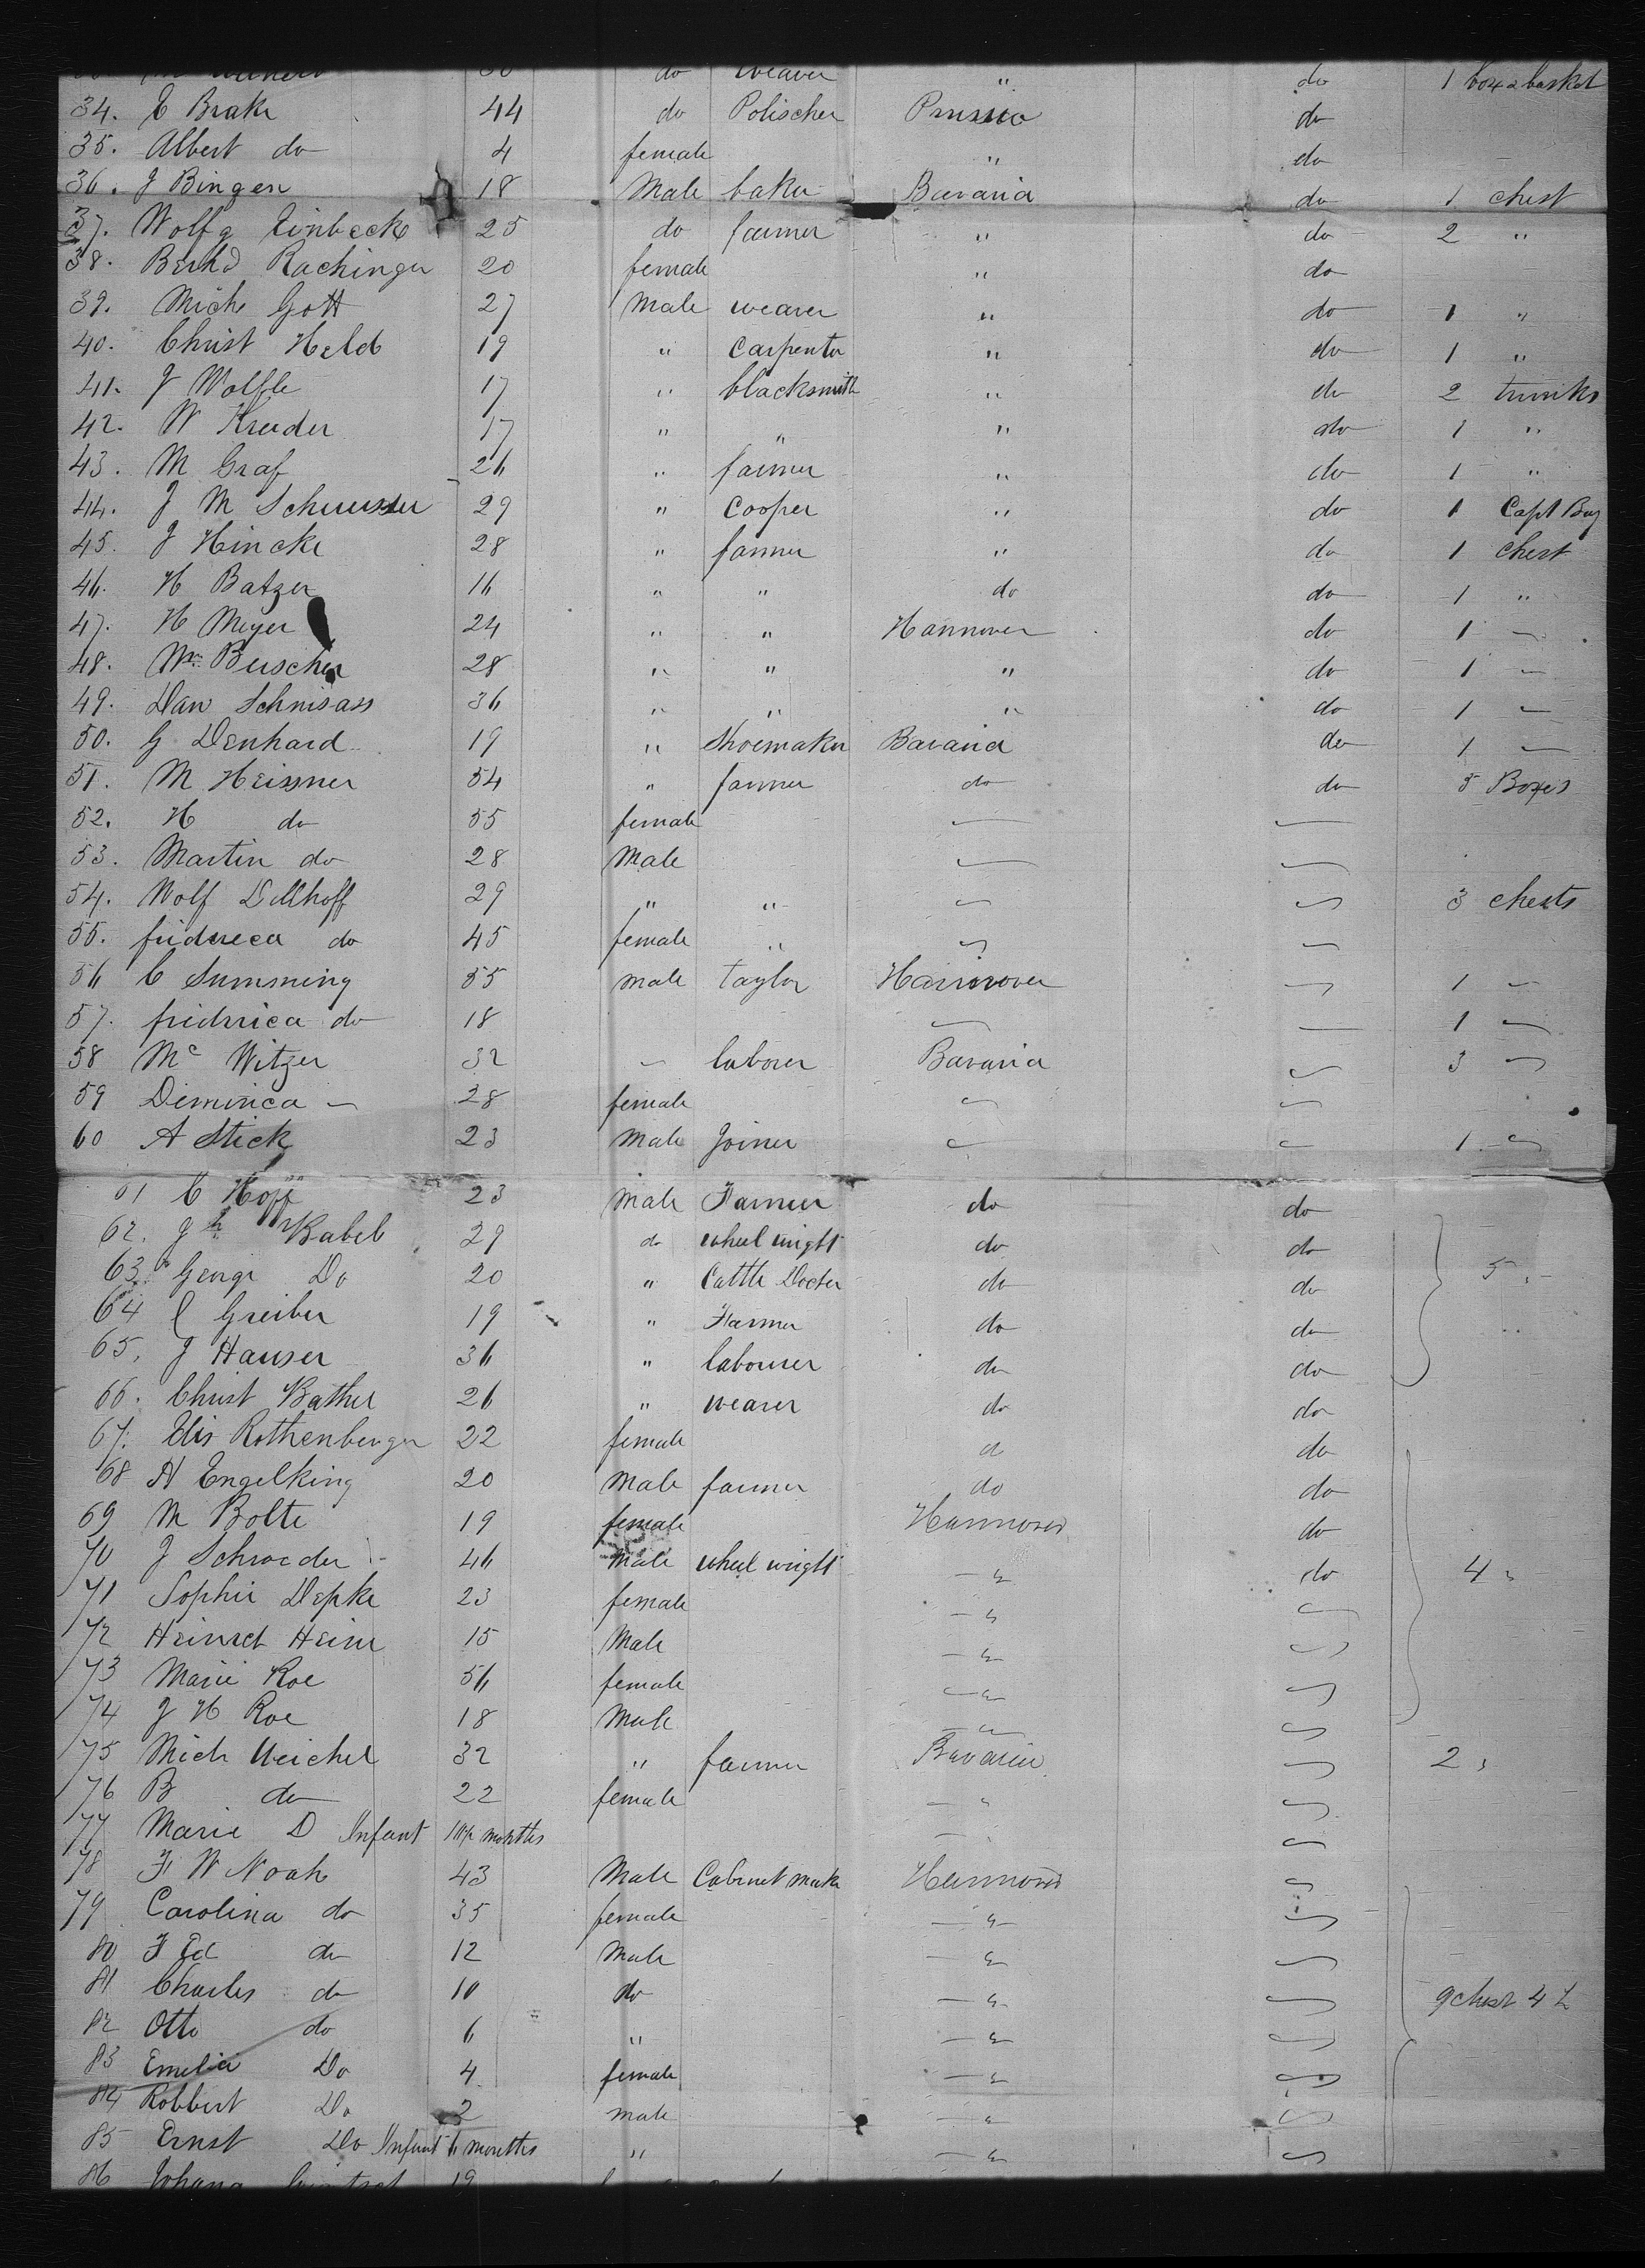 do weaver " do 1 box & basket
34. C Brake 44 do Polischer Prussia do
35. Albert do 4 female " do
36. J Bingen 18 Male baker Bavaria do 1 chest
37. Wolfg Einbeck 25 do farmer " do 2 "
38. Berhd Rachinger 20 female " do
39. Mich Gott 27 Male weaver " do 1 "
40. Christ Held 19 " Carpenter " do 1 "
41. J Wolfle 17 " blacksmith " do 2 trunks
42. W Kreuder 17 " " " do 1 "
43. M Graf 26 " farmer " do 1 "
44. J M 29 " Cooper " do 1 Capt Bag
45. J Hincke 28 " farmer " do 1 Chest
46. H Batzer 16 " " do do 1 "
47. H Meyer 24 " " Hannover do 1 "
48. Wm Buscher 28 " " " do 1 "
49. Dan Schnisass 36 " " " do 1 "
50. G Denhard 19 " Shoemaker Bavaria do 1 "
51. M Heissner 54 " farmer do do 5 Boxes
52. H do 55 female " "
53. Martin do 28 Male " "
54. Wolf Dillhoff 29 " " " " 3 chests
55. fridreca do 45 female " " "
56 C Summing 55 male taylor Hannover " 1 "
57. fridrica do 18 " " 1 "
58 Mc Witzer 32 " laborer Bavaria " 3 "
59 Diminica " 28 female " "
60 A Stick 23 Male Joiner " " 1 "
61 C Hoff 23 male Farmer do do
62. Jh Babel 29 do wheel wright do do
63. George Do 20 " Cattle Docter do do 5 "
64 C Greiber 19 " Farmer do do
65. J Hauser 36 " labourer do do
66. Christ Bather 26 " weaver do do
67. Elis Rothenberger 22 female d do
68 H Engelking 20 Male farmer do do
69 M Bolte 19 female Hannover do
70 J Schroeder 46 Male wheel wright " do 4 "
71 Sophie Depke 23 female " "
72 Heinrch Heine 15 Male " "
73 Marie Roe 56 female " "
74 J H Roe 18 Male " "
75 Mich Weichel 32 " farmer Bavaria " 2 "
76 B do 22 female " "
77 Marie D Infant months " "
78 F W Noah 43 Male Cabinet make Hannover "
79 Carolina do 35 female " "
80 F Ed do 12 Male " "
81 Charles do 10 do " " 9 chest 4
82 Otto do 6 " " "
83 Emelia Do 4 female " "
84 Robbert Do 2 male " "
85 Ernst Do Infant 6 months " " "
86 Johana 19